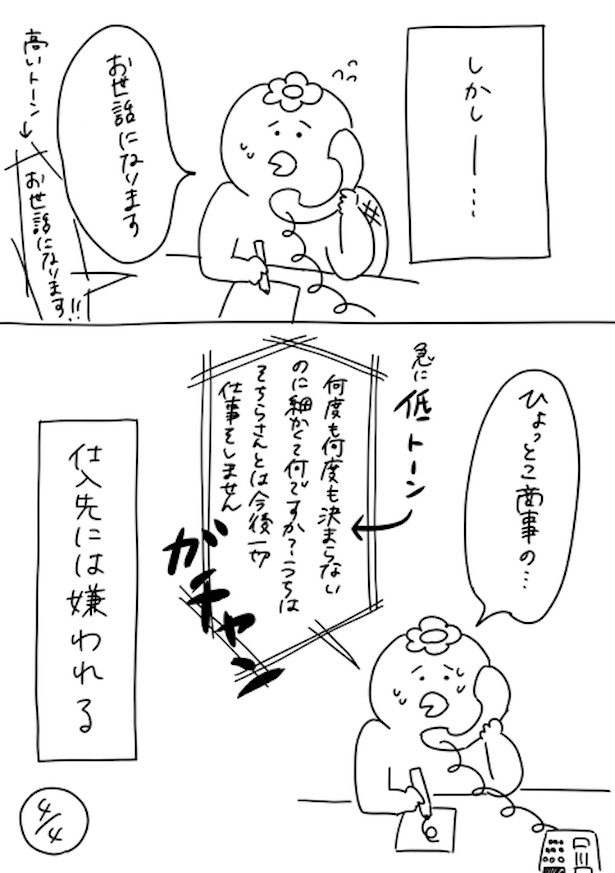 しかしー…
お世話になります
高いトーン↓
お世話になります!!
ひょっとこ商事の…
急に低トーン
何度も何度も決まらない
のに細かくて何ですか?うちは
そちらさんとは今後一切
仕事をしません
ガチャン
仕入先には嫌われる
4/4